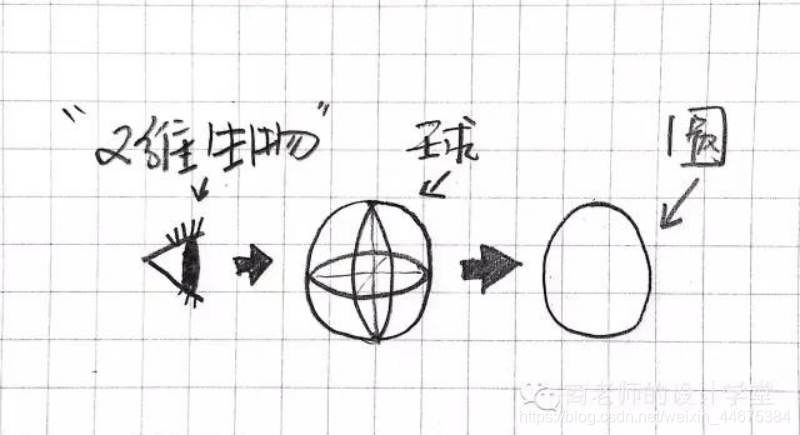 “2维生物”
球
圆
蜀老师的设计学堂
https://blog.csdn.net/weixin_44675384